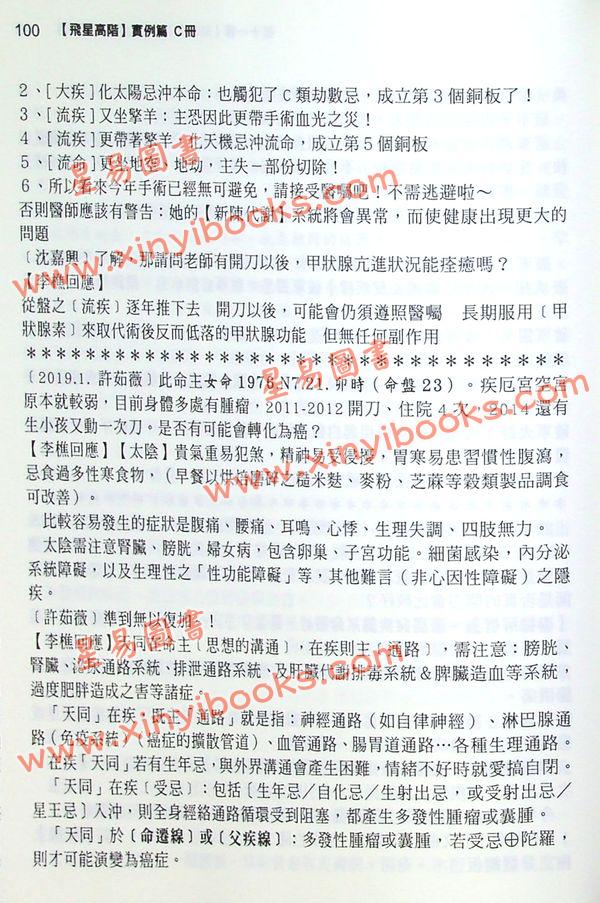 100 【飛星高階】實例篇 C冊
2、[大疾]化太陽忌沖本命：也觸犯了C類劫數忌，成立第3個銅板了！
3、[流疾]又坐擎羊：主恐因此更帶手術血光之災！
4、[流疾]更帶著擎羊 化天機忌沖流命，成立第5個銅板
5、[流命]更坐地空、地劫，主失一部份切除！
6、所以看來今年手術已經無可避免，請接受醫囑吧！不需逃避啦～
否則醫師應該有警告：她的【新陳代謝】系統將會異常，而使健康出現更大的
問題
〔沈嘉興〕了解，那請問老師有開刀以後，甲狀腺亢進狀況能痊癒嗎？
【李樵回應】
從盤之〔流疾〕逐年推下去 開刀以後，可能會仍須遵照醫囑 長期服用〔甲
狀腺素〕來取代術後反而低落的甲狀腺功能 但無任何副作用
＊＊＊＊＊＊＊＊＊＊＊＊＊＊＊＊＊＊＊＊＊＊＊＊＊＊＊＊＊＊
〔2019.1. 許茹薇〕此命主女命1976.N7/21. 卯時（命盤23）。疾厄宮空宮
原本就較弱，目前身體多處有腫瘤，2011-2012開刀、住院4次，2014還有
生小孩又動一次刀。是否有可能會轉化為癌？
【李樵回應】【太陰】貴氣重易犯煞，精神易受侵擾，胃寒易患習慣性腹瀉，
忌食過多性寒食物，（早餐以烘焙磨碎之糙米麩、麥粉、芝蔴等穀類製品調食
可改善）。
比較容易發生的症狀是腹痛、腰痛、耳鳴、心悸、生理失調、四肢無力。
太陰需注意腎臟、膀胱，婦女病，包含卵巢、子宮功能。細菌感染，內分泌
系統障礙，以及生理性之「性功能障礙」等，其他難言（非心因性障礙）之隱
疾。
〔許茹薇〕準到無以復加！！
【李樵回應】天同在命主〔思想的溝通〕，在疾則主〔通路〕，需注意：膀胱、
腎臟、泌尿通路系統、排泄通路系統、及肝臟代謝排毒系統＆脾臟造血等系統，
過度肥胖造成之害等諸症。
「天同」在疾，既主「通路」就是指：神經通路（如自律神經）、淋巴腺通
路（免疫系統）（癌症的擴散管道）、血管通路、腸胃道通路…各種生理通路。
在疾「天同」若有生年忌，與外界溝通會產生困難，情緒不好時就愛搞自閉。
「天同」在疾〔受忌〕：包括〔生年忌/自化忌/生射出忌，或受射出忌/
星王忌〕入沖，則全身經絡通路循環受到阻塞，都產生多發性腫瘤或囊腫。
「天同」於〔命遷線〕或〔父疾線〕：多發性腫瘤或囊腫，若受忌⊕陀羅，
則才可能演變為癌症。
星易圖書
www.xinyibooks.com
星易圖書
www.xinyibooks.com
星易圖書
www.xinyibooks.com